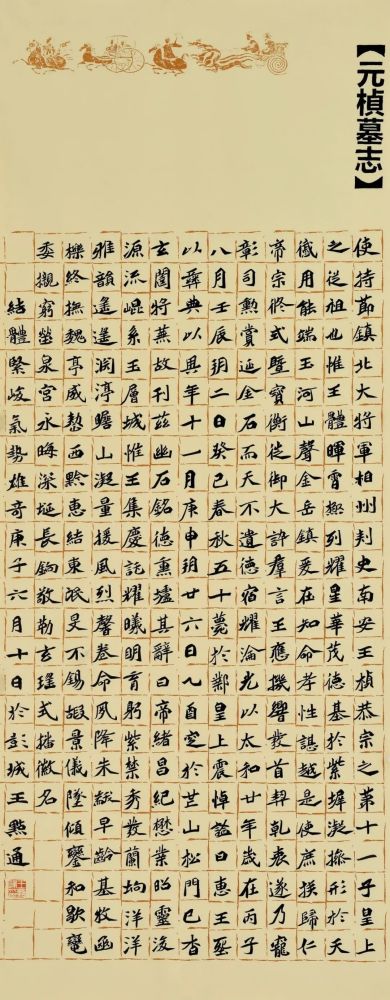 【元楨墓志】
使持節鎮北大將軍相州刺史南安王楨恭宗之第十一子皇上
之從祖也惟王體暉霄極列耀星華茂德基於紫墀凝操形於天
儀用能端玉河山聲金岳鎮爰在知命孝性諶越是使庶族歸仁
帝宗攸式暨寶衡徙御大訊群言王應機響發首契乾衷遂乃寵
彰司勳賞延金石而天不遺德宿耀淪光以太和廿年歲在丙子
八月壬辰玥二日癸巳春秋五十薨於鄴皇上震悼謚曰惠王葬
以彝典以其年十一月庚申玥廿六日乙酉窆於芒山松門已杳
玄闥將蕪故刊茲幽石銘德熏壚其辭曰帝緒昌紀懋業昭靈浚
源流崐系玉層城惟王集慶託耀曦明育躬紫禁秀發蘭坰洋洋
雅韻遙遙淵渟瞻山凝量援風烈馨卷命夙降朱黻早齡基牧幽
櫟終撫魏亭威整西黔惠結東氓旻不錫嘏景儀墜傾鑾和歇轡
委櫬窮塋泉宮永晦深埏長鋦敬勒玄瑤式播徽名
結體緊峻氣勢雄奇庚子六月十日於彭城王黙通